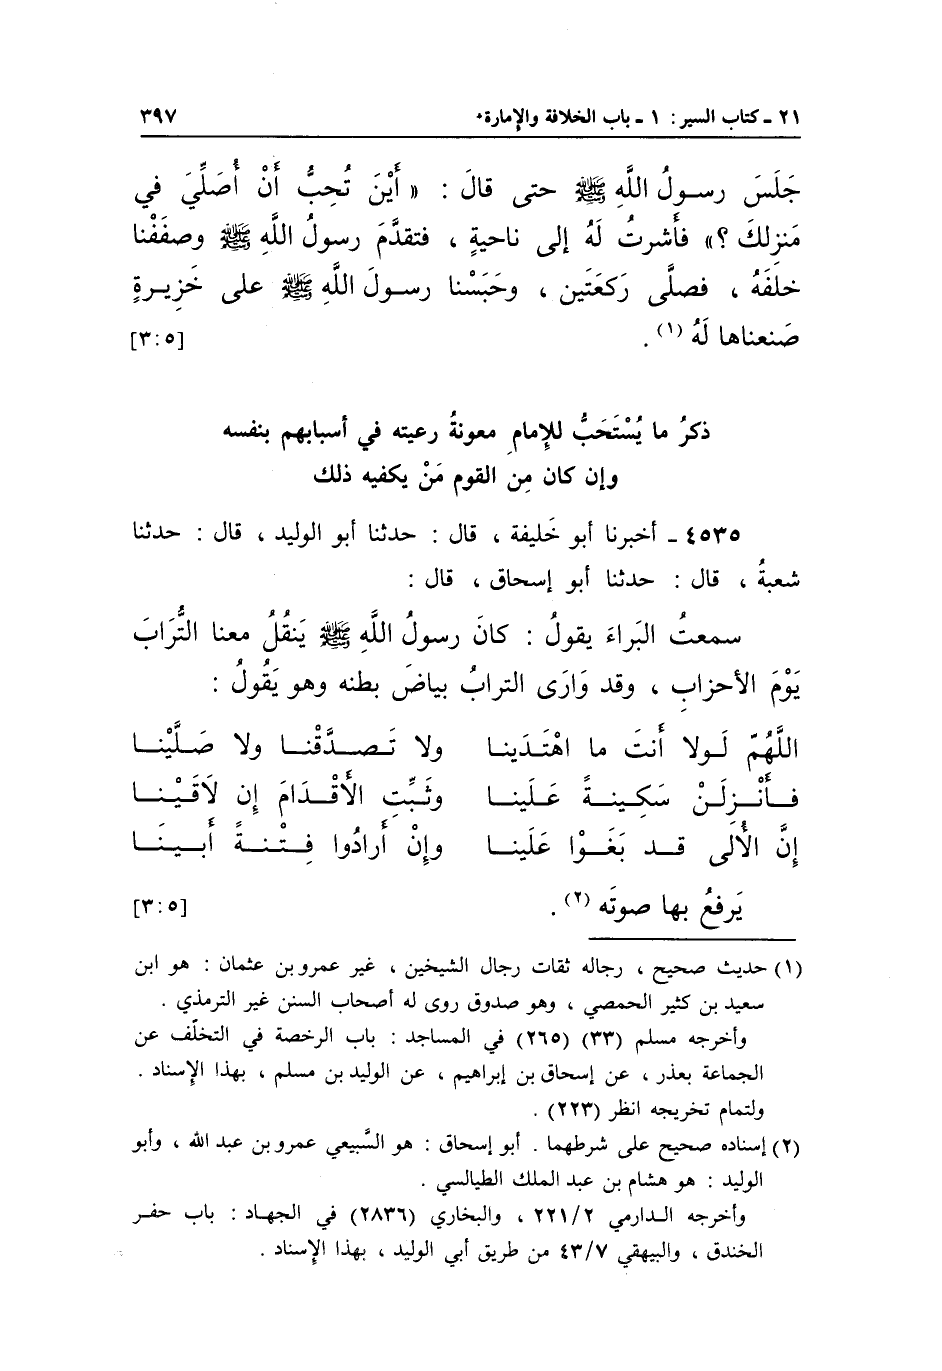 ٢١ ـ كتاب السير : ١ ـ باب الخلافة والإمارة ٣٩٧
جَلَسَ رسولُ اللَّهِ ﷺ حتى قالَ : « أَيْنَ تُحِبُّ أَنْ أُصَلِّيَ في
مَنزِلكَ ؟» فأَشرتُ لَهُ إلى ناحيةٍ ، فتقدَّمَ رسولُ اللَّهِ ﷺ وصفَفْنا
خلفَهُ ، فصلَّى رَكعَتَين ، وحَبَسْنا رسولَ اللَّهِ ﷺ على خَزِيرةٍ
صَنعناها لَهُ (١) . [٥ :٣]
ذكرُ ما يُسْتَحَبُّ للإمامِ معونةُ رعيته في أسبابهم بنفسه
وإن كان مِن القوم مَنْ يكفيه ذلك
٤٥٣٥ ـ أخبرنا أبو خَليفة ، قال : حدثنا أبو الوليد ، قال : حدثنا
شعبةُ ، قال : حدثنا أبو إسحاق ، قال :
سمعتُ البَراءَ يقولُ : كانَ رسولُ اللَّهِ ﷺ يَنقُلُ معنا التُّرَابَ
يَوْمَ الأحزابِ ، وقد وَارَى الترابُ بياضَ بطنه وهو يَقُولُ :
اللَّهُمّ لَـولا أَنتَ ما اهْتَدَينا ولا تَـصـدَّقْنـا ولا صَـلَّيْنـا
فـأَنْـزِلَـنْ سَكِـينـةً عَـلَينا وثَبِّتِ الأَقْـدَامَ إن لَاقَـيْنـا
إنَّ الأُلَى قـد بَغَـوْا عَلَينـا وإنْ أَرادُوا فِـتْنـةً أَبـينَـا
يَرفعُ بها صوتَه (٢) . [٥ :٣]
(١) حديث صحيح ، رجاله ثقات رجال الشيخين ، غير عمرو بن عثمان : هو ابن
سعيد بن كثير الحمصي ، وهو صدوق روى له أصحاب السنن غير الترمذي .
وأخرجه مسلم (٣٣) (٢٦٥) في المساجد : باب الرخصة في التخلّف عن
الجماعة بعذر ، عن إسحاق بن إبراهيم ، عن الوليد بن مسلم ، بهذا الإسناد .
ولتمام تخريجه انظر (٢٢٣) .
(٢) إسناده صحيح على شرطهما . أبو إسحاق : هو السَّبيعي عمرو بن عبد الله ، وأبو
الوليد : هو هشام بن عبد الملك الطيالسي .
وأخرجه الـدارمي ٢٢١/٢ ، والبخاري (٢٨٣٦) في الجهـاد : باب حفـر
الخندق ، والبيهقي ٤٣/٧ من طريق أبي الوليد ، بهذا الإسناد .